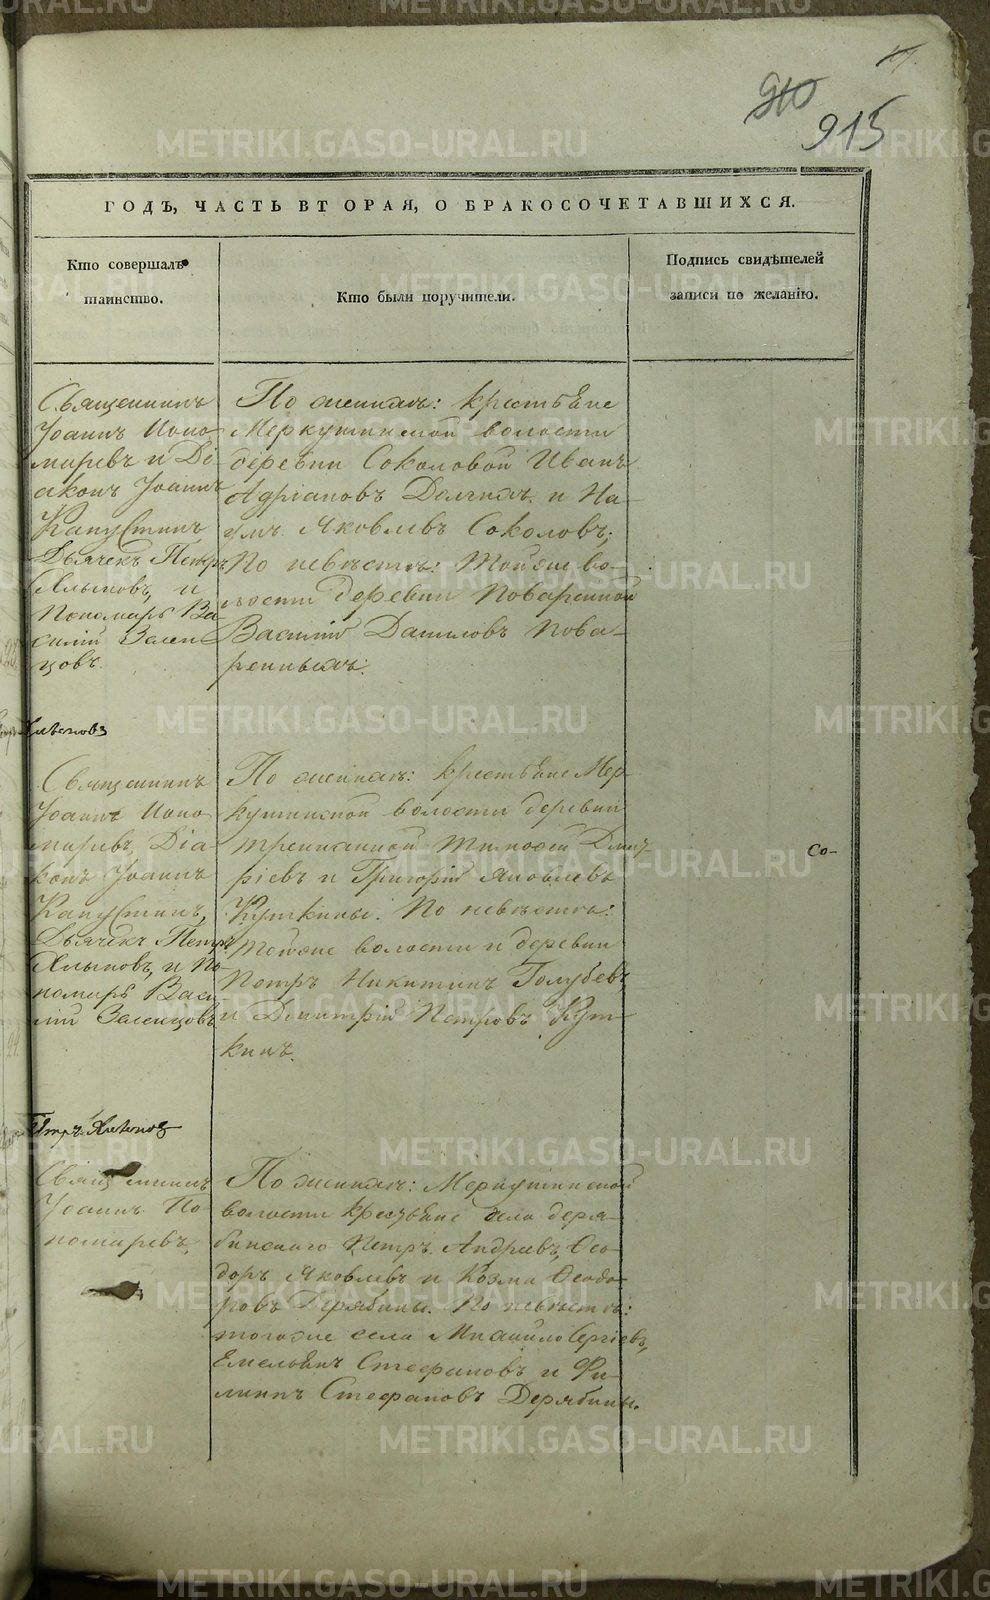 910
915
ГОДЪ, ЧАСТЬ ВТОРАЯ, О БРАКОСОЧЕТАВШИХСЯ.
Кто совершалъ
таинство.
Кто были поручители.
Подпись свидѣтелей
записи по желанію.
Священникъ
Іоаннъ Поно-
маревъ и Ді-
аконъ Іоаннъ
Капустинъ
Дьячекъ Петръ
Хлыновъ, и
Пономарь Ва-
силій Заспи-
цовъ.
По женихѣ: крестьяне
Меркушинской волости
деревни Соколовой Иванъ
Адріановъ Долгихъ и На-
умъ Яковлевъ Соколовъ;
По невѣстѣ: Тойже во-
лости деревни Поваренной
Василій Даниловъ Пова-
ренныхъ.
Священникъ
Іоаннъ Поно-
маревъ, Діа-
конъ Іоаннъ
Капустинъ,
Дьячекъ Петръ
Хлыновъ, и По-
номарь Васи-
лій
По женихѣ: крестьяне Мер-
кушинской волости деревни
Тимофей Дмит-
ріевъ и Григорій Яковлевъ
Куткины. По невѣстѣ:
Тойже волости и деревни
Петръ Никитинъ Голубевъ
и Димитрій Петровъ Кут-
кинъ.
Со-
Петръ
Священникъ
Іоаннъ По-
номаревъ,
По женихѣ: Меркушинской
волости крестьяне села Деря-
бинскаго Петръ Андреевъ, Ѳео-
доръ Яковлевъ и Козма Ѳеодо-
ровъ Дерябины. По невѣстѣ:
тогоже села Михайло Сергіевъ,
Емельянъ Стефановъ и Фи-
липпъ Стефановъ Дерябины.
METRIKI.GASO-URAL.RU